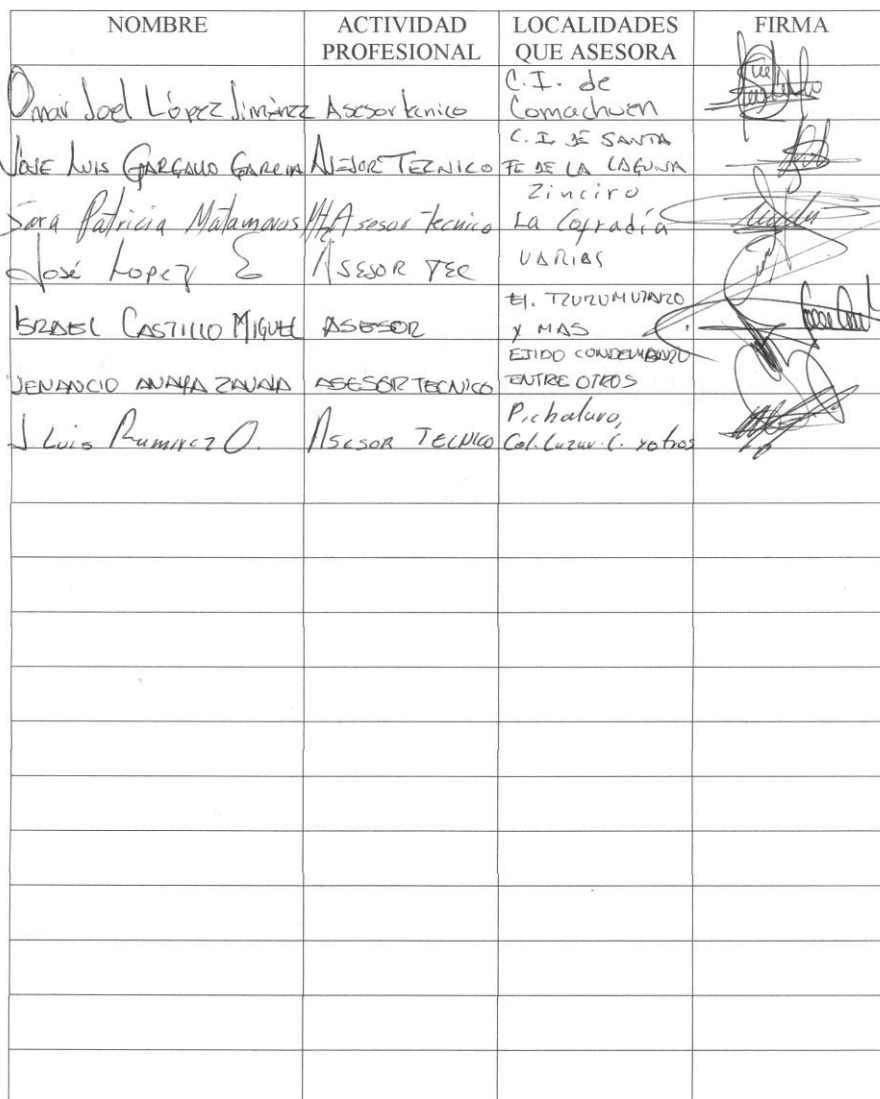 NOMBRE ACTIVIDAD PROFESIONAL LOCALIDADES QUE ASESORA FIRMA
Omar Joel López Jiménez Asesor tecnico C.I. de Comachuen
JOSE LUIS GARGALLO GARCIA ASESOR TECNICO C.I. DE SANTA FE DE LA LAGUNA
Sara Patricia Matamoros Asesor tecnico Zinciro La Cofradía
José Lopez ASESOR TEC VARIAS
ISRAEL CASTILLO MIGUEL ASESOR EJ. TZURUMUTARO Y MAS
VENANCIO ANAYA ZAVALA ASESOR TECNICO EJIDO CONDEMBARO ENTRE OTROS
J Luis Ramirez O. ASESOR TECNICO Pichataro, Col. Lazar. C. y otros